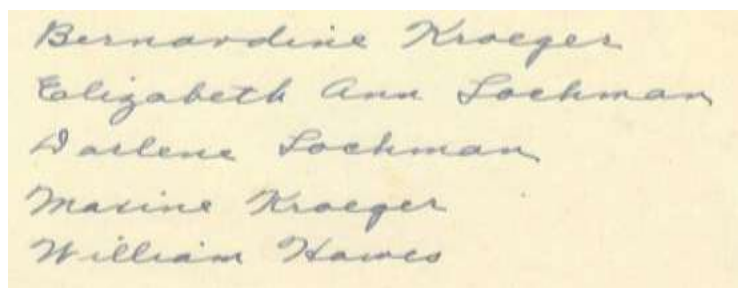 Bernardine Kroeger
Elizabeth Ann Lochman
Darlene Lochman
Maxine Kroeger
William Hawes